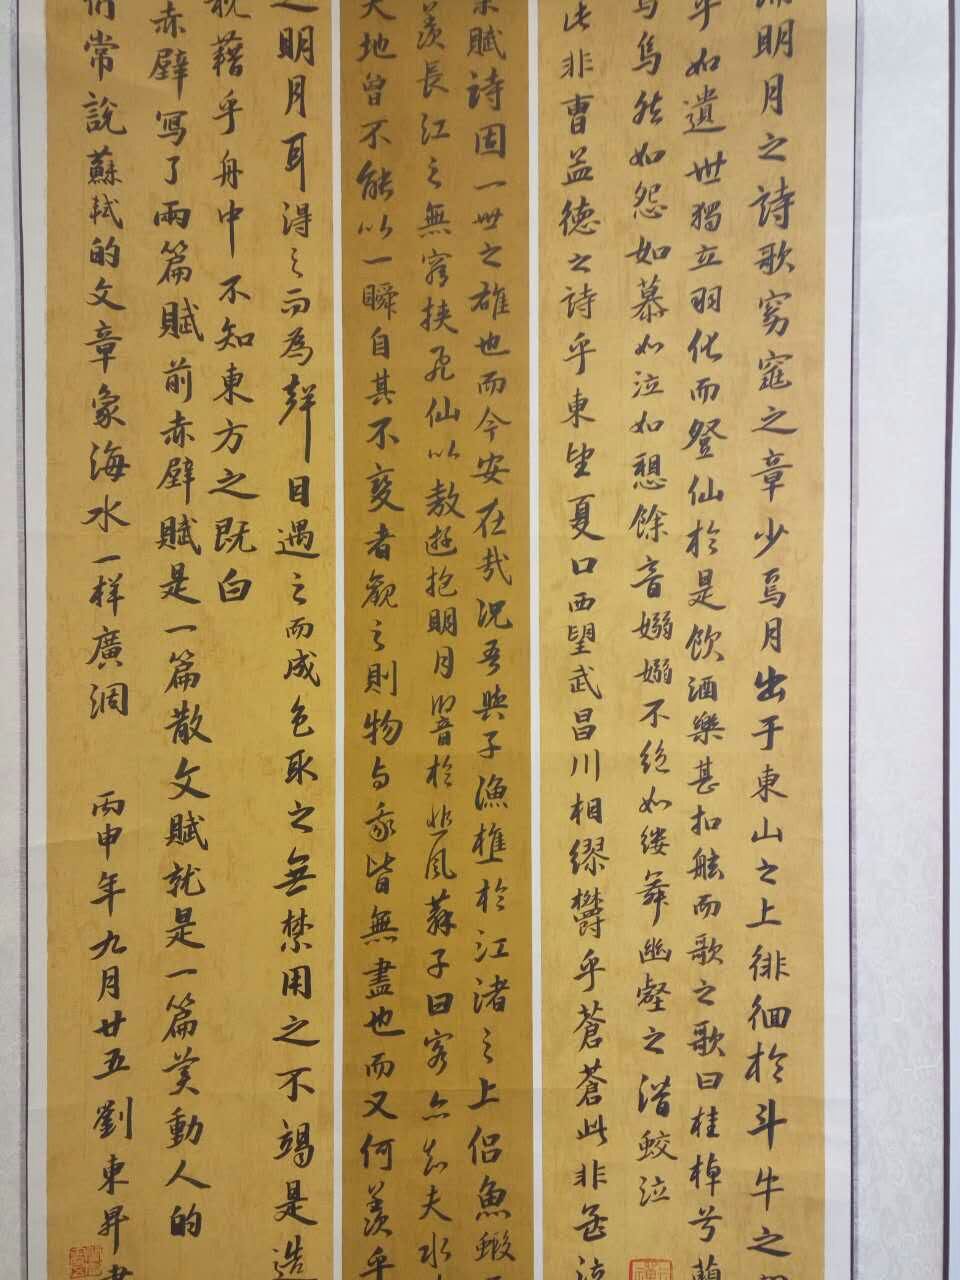 明月之詩歌窈窕之章少焉月出于東山之上徘徊於斗牛之
乎如遺世獨立羽化而登仙於是飲酒樂甚扣舷而歌之歌曰桂棹兮蘭
烏然如怨如慕如泣如愬餘音嫋嫋不絕如縷舞幽壑之潛蛟泣
此非曹孟德之詩乎東望夏口西望武昌川相繆鬱乎蒼蒼此非孟
賦詩固一世之雄也而今安在哉況吾與子漁樵於江渚之上侶魚蝦
羨長江之無窮挾飛仙以敖遊抱明月於悲風蘇子曰客亦知夫水
天地曾不能以一瞬自其不變者觀之則物与我皆無盡也而又何羨乎
之明月耳得之而為聲目遇之而成色取之無禁用之不竭是造
枕藉乎舟中不知東方之既白
赤壁寫了兩篇賦前赤壁賦是一篇散文賦就是一篇美動人的
們常說蘇軾的文章象海水一样廣濶 丙申年九月廿五劉東昇書